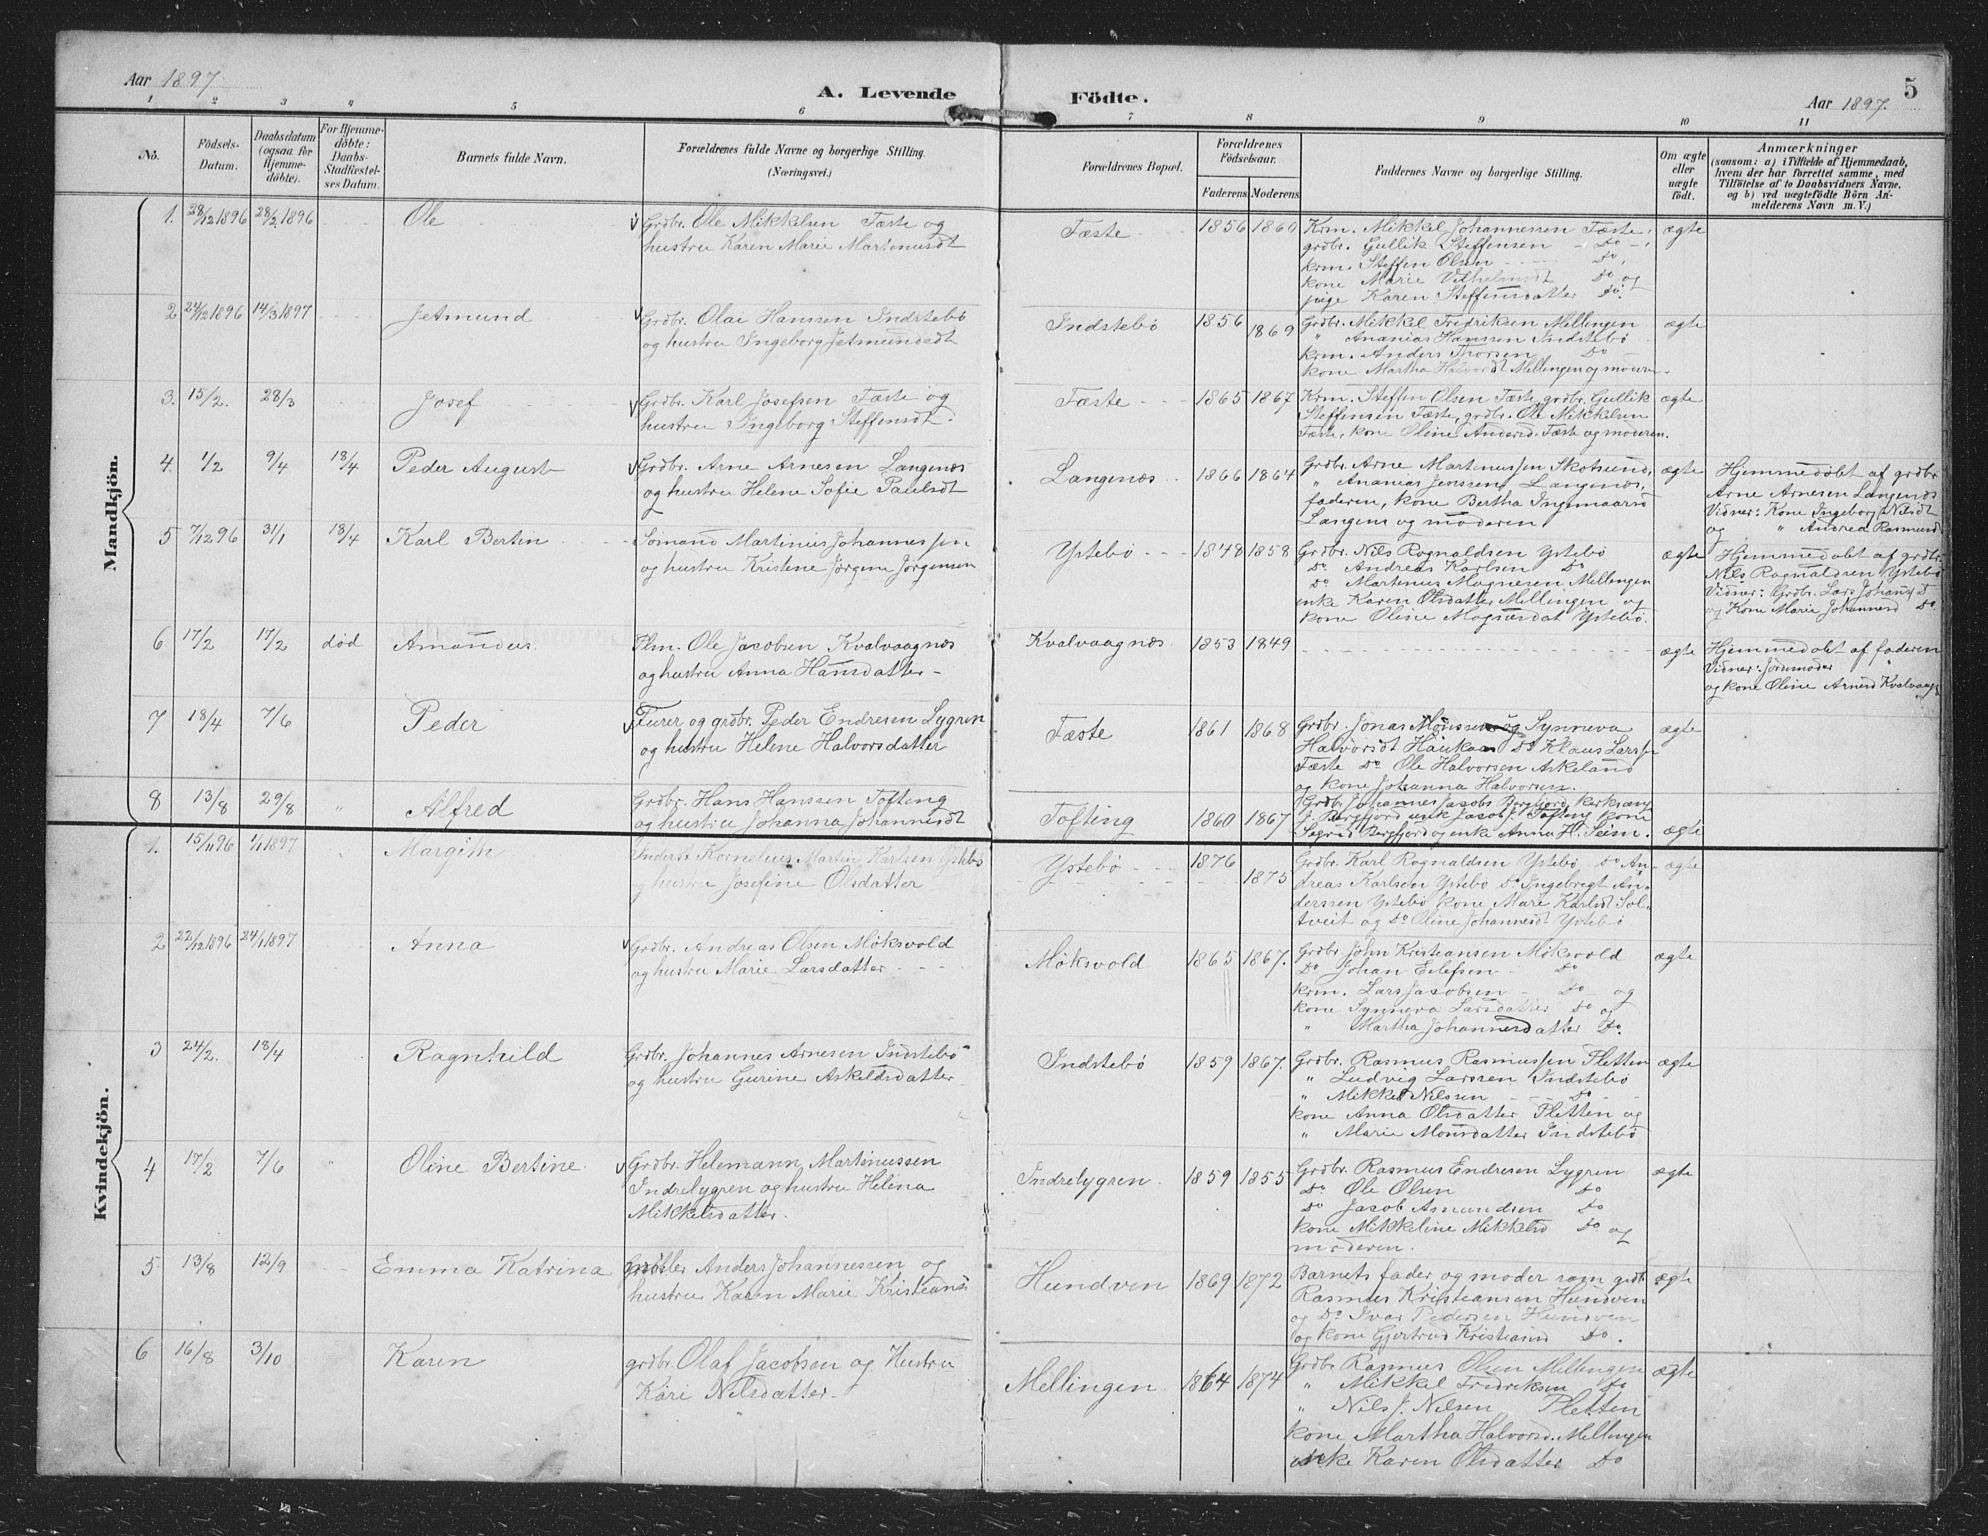 Aar 1897. A. Levende Födte. Aar 1897. 5
1 2 3 4 5 6 7 8 9 10 11
No. Födsels-Datum. Daabsdatum (ogsaa for Hjemme-döbte). For Hjemme-döbte: Daabs-Stadfæstel-ses Datum. Barnets fulde Navn. Forældrenes fulde Navne og borgerlige Stilling. (Næringsvei.) Forældrenes Bopæl. Forældrenes Födselsaar. Faderens. Moderens. Faddernes Navne og borgerlige Stilling. Om ægte eller uægte födt. Anmærkninger (saasom: a) i Tilfælde af Hjemmedaab, hvem der har forrettet samme, med Tilföielse af to Daabsvidners Navne, og b) ved uægtefödte Börn An-melderens Navn m. V.)
Mandkjön.
1. 28/12 1896 28/2 1896 Ole Grdbr. Ole Mikkelsen Tæste og
hustru Karen Marie Martinusdt
Tæste 1856 1860 Krm. Mikkel Johannessen Tæste,
grdbr. Gullik Steffensen Do
krm. Steffen Olsen Do,
kone Marie Vilhelmsdt Do og
pige Karen Steffensdatter Do.
ægte
2 24/12 1896 14/3 1897 Jetmund Grdbr. Olai Hanssen Indstebö
og hustru Ingeborg Jetmundsdt
Indstebö 1856 1869 Grdbr. Mikkel Fredriksen Mellingen
" Ananias Hanssen Indstebö
krm. Anders Thorsen Do
kone Martha Halvorsdt Mellingen og moderen.
ægte
3. 15/2. 28/3 Josef Grdbr. Karl Josefsen Tæste og
hustru Ingeborg Steffensdt.
Tæste 1865 1867 Krm. Steffen Olsen Tæste, grdbr. Gullik
Steffensen Tæste, grdbr. Ole Mikkelsen
Tæste, kone Oline Andersd. Tæste og moderen.
ægte
4. 1/2 9/4 18/4 Peder August Grdbr. Arne Arnesen Langenæs
og hustru Helene Sofie Paulsdt
Langenæs 1866 1864 Grdbr. Arne Martinussen Skotsund,
" Ananias Jenssen Langenæs,
faderen, kone Bertha Ingemaarsd
Langens og moderen
ægte
Hjemmedøbt af grdbr
Arne Arnesen Langenæs
Vidner: Kone Ingeborg Nilsdt
og " Andrea Rasmusd
5 7/12 96 31/1 18/4 Karl Bertin Sömand Martinus Johannessen
og hustru Kristene Jørgine Jørgensen
Ystebö 1848 1858 Grdbr. Nils Rognaldsen Ystebö
Do Andreas Karlsen Do
Do Martinus Magnesen Mellingen
enke Karen Olsdatter Mellingen og
kone Oline Magnesdat Ystebö.
ægte
Hjemmedøbt af grdbr.
Nils Rognaldsen Ystebö
Vidner: Grdbr. Lars Johans Do
og Kone Marie Johannesd Do.
6 17/2 17/2 död Amandus. Plm. Ole Jacobsen Kvalvaagnæs
og hustru Anna Hansdatter
Kvalvaagnæs 1853 1849 ægte
Hjemmedøbt af faderen
Vidner: Jordemoder
og kone Oline Arnesd Kvalvaagn
7 18/4 7/6 Peder Furer og grdbr. Peder Endresen Lygren
og hustru Helene Halvorsdatter
Tæste 1861 1868 Grdbr. Jonas Monssen og Synneva
Halvorsdt Haukaas Do Klaus Larssen
Tæste Do Ole Halvorsen Askeland
og kone Johanna Halvorsen.
ægte
8 13/8 29/8 " Alfred Grdbr. Hans Hanssen Tofteng
og hustru Johanna Johannesdt
Tofting 1860 1867 Grdbr. Johannes Jacobs Bergfjord, kirksang
J. Bergfjord enk Jacob J. Tofting kone
Segrid Bergfjord og enke Anna H. Seim.
ægte
Kvindekjön.
1. 15/11 96 1/1 1897 " Margith Inderst Kornelius Martin Karlsen Ystebö
og hustru Josefine Olsdatter
Ystebö 1876 1875 Grdbr. Karl Rognaldsen Ystebö Do An-
dreas Karlsen Ystebö Do Ingebregt An-
derssen Ystebö kone Mari Karlsdt Sol-
tveit og Do Oline Johannesdt Ystebö
ægte
2 22/12 1896 24/1 1897 Anna Grdbr. Andreas Olsen Møksvold
og hustru Marie Larsdatter
Møksvold 1865 1867. Grdbr. John Kristiansen Møksvold
Do Johan Eilefsen Do
krm. Lars Jacobsen Do og
kone Synneva Larsdatter Do og
" Martha Johannesdatter Do.
ægte
3 24/2. 18/4 Ragnhild Grdbr. Johannes Arnesen Indstebö
og hustru Gurine Askeldsdatter
Indstebö 1859 1867. Grdbr. Rasmus Rasmussen Pletten
" Ludvig Larssen Indstebö
" Mikkel Nilssen Do
kone Anna Olsdatter Pletten og
" Marie Monsdatter Indstebö
ægte
4 17/2 7/6 " Oline Bertine. Grdbr. Helemann Martinussen
Indrelygren og hustru Helena
Mikkelsdatter.
Indrelygren. 1859 1855 Grdbr. Rasmus Endresen Lygren
Do Ole Olsen Do
Do Jacob Asmundsen Do
kone Mikkeline Mikkelsd Do og
moderen.
ægte
5. 13/8 12/9 Emma Katrina Anders Johannessen og
hustru Karen Marie Kristians
Hundven 1869 1872 Barnets fader og moder sam grdb.
Rasmus Kristiansen Hundven
og Do Ivar Pedersen Hundven
og kone Gjertrud Kristiansd Do.
ægte
6 16/8 3/10 Karen grdbr. Olaf Jacobsen og Hustru
Kari Nilsdatter.
Mellingen. 1864 1874 Grdbr. Rasmus Olsen Mellingen
" Mikkel Fredriksen Do
" Nils J. Nilsen Pletten
kone Martha Halvorsd. Mellingen
enke Karen Olsdatter Do
ægte